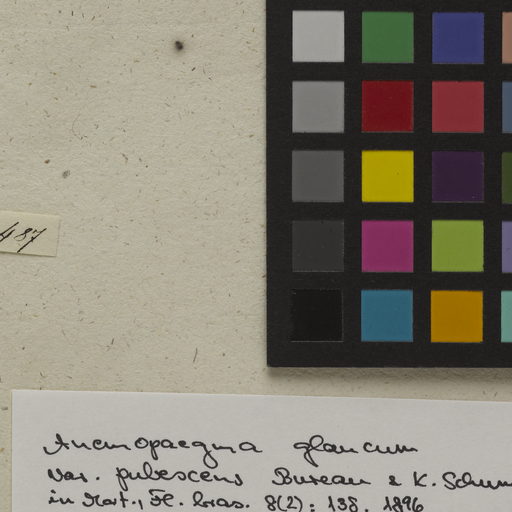 487
Anemopaegma glaucum
var. pubescens Bureau & K. Schum
in Mart., Fl. bras. 8(2): 138. 1896